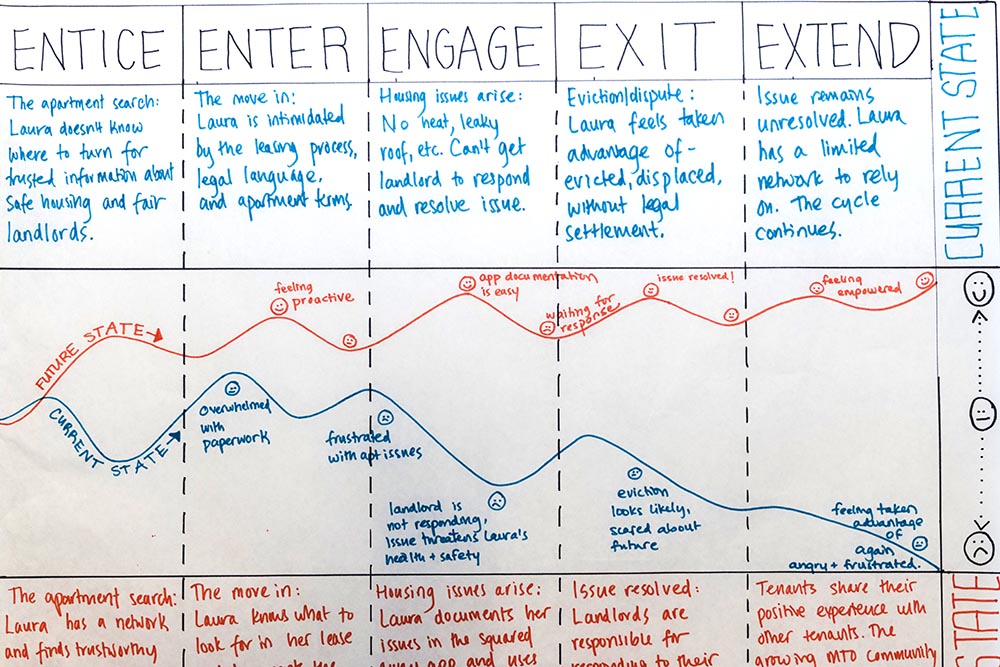 ENTICE
ENTER
ENGAGE
EXIT
EXTEND
CURRENT STATE
The apartment search:
Laura doesn't know
where to turn for
trusted information about
safe housing and fair
landlords.
The move in:
Laura is intimidated
by the leasing process,
legal language,
and apartment terms.
Housing issues arise:
No heat, leaky
roof, etc. Can't get
landlord to respond
and resolve issue.
Eviction/dispute:
Laura feels taken
advantage of -
evicted, displaced,
without legal
settlement.
Issue remains
unresolved. Laura
has a limited
network to rely
on. The cycle
continues.
FUTURE STATE
feeling
proactive
app documentation
is easy
waiting for
response
issue resolved!
feeling
empowered
CURRENT STATE
overwhelmed
with
paperwork
frustrated
with apt issues
landlord is
not responding,
issue threatens Laura's
health + safety
eviction
looks likely,
scared about
future
feeling taken
advantage
of
again
angry + frustrated.
The apartment search:
Laura has a network
and finds trustworthy
The move in:
Laura knows what to
look for in her lease
Housing issues arise:
Laura documents her
issues in the squared
app and uses
Issue resolved:
Landlords are
responsible for
responding to their
Tenants share their
positive experience with
other tenants. The
growing MTO community
STATE